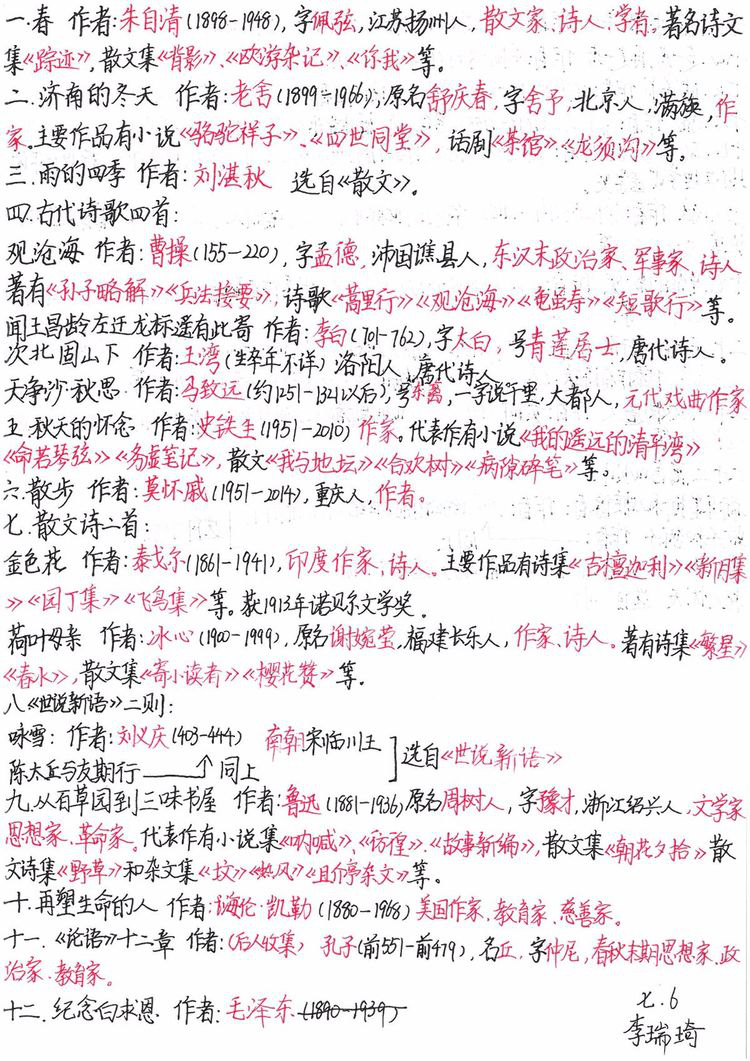 一.春 作者:朱自清(1898-1948),字佩弦,江苏扬州人,散文家、诗人、学者。著名诗文
集《踪迹》,散文集《背影》、《欧游杂记》、《你我》等。
二.济南的冬天 作者:老舍(1899-1966),原名舒庆春,字舍予,北京人,满族,作
家。主要作品有小说《骆驼祥子》、《四世同堂》,话剧《茶馆》《龙须沟》等。
三.雨的四季 作者:刘湛秋 选自《散文》。
四.古代诗歌四首:
观沧海 作者:曹操(155-220),字孟德,沛国谯县人,东汉末政治家、军事家、诗人
著有《孙子略解》《兵法接要》,诗歌《蒿里行》《观沧海》《龟虽寿》《短歌行》等。
闻王昌龄左迁龙标遥有此寄 作者:李白(701-762),字太白,号青莲居士,唐代诗人。
次北固山下 作者:王湾(生卒年不详)洛阳人,唐代诗人
天净沙·秋思 作者:马致远(约1251-1321以后),号东篱,一字说千里.大都人,元代戏曲作家
五.秋天的怀念 作者:史铁生(1951-2010)作家。代表作有小说《我的遥远的清平湾》
《命若琴弦》《务虚笔记》,散文《我与地坛》《合欢树》《病隙碎笔》等。
六.散步 作者:莫怀戚(1951-2014),重庆人,作者。
七.散文诗二首:
金色花 作者:泰戈尔(1861-1941),印度作家、诗人。主要作品有诗集《吉檀迦利》《新月集
》《园丁集》《飞鸟集》等。获1913年诺贝尔文学奖.
荷叶母亲 作者:冰心(1900-1999),原名谢婉莹,福建长乐人,作家、诗人。著有诗集《繁星》
《春水》,散文集《寄小读者》《樱花赞》等。
八《世说新语》二则:
咏雪: 作者:刘义庆(403-444) 南朝宋临川王
选自《世说新语》
陈太丘与友期行 ↑同上
九.从百草园到三味书屋 作者:鲁迅(1881-1936)原名周树人,字豫才,浙江绍兴人,文学家
思想家、革命家。代表作有小说集《呐喊》、《彷徨》、《故事新编》,散文集《朝花夕拾》散
文诗集《野草》和杂文集《坟》《热风》《且介亭杂文》等。
十.再塑生命的人 作者:海伦·凯勒(1880-1968)美国作家、教育家、慈善家。
十一.《论语》十二章 作者:(后人收集) 孔子(前551-前479),名丘,字仲尼,春秋末期思想家、政
治家、教育家。
十二.纪念白求恩 作者:毛泽东(1890-1939)
七.6
李瑞琦